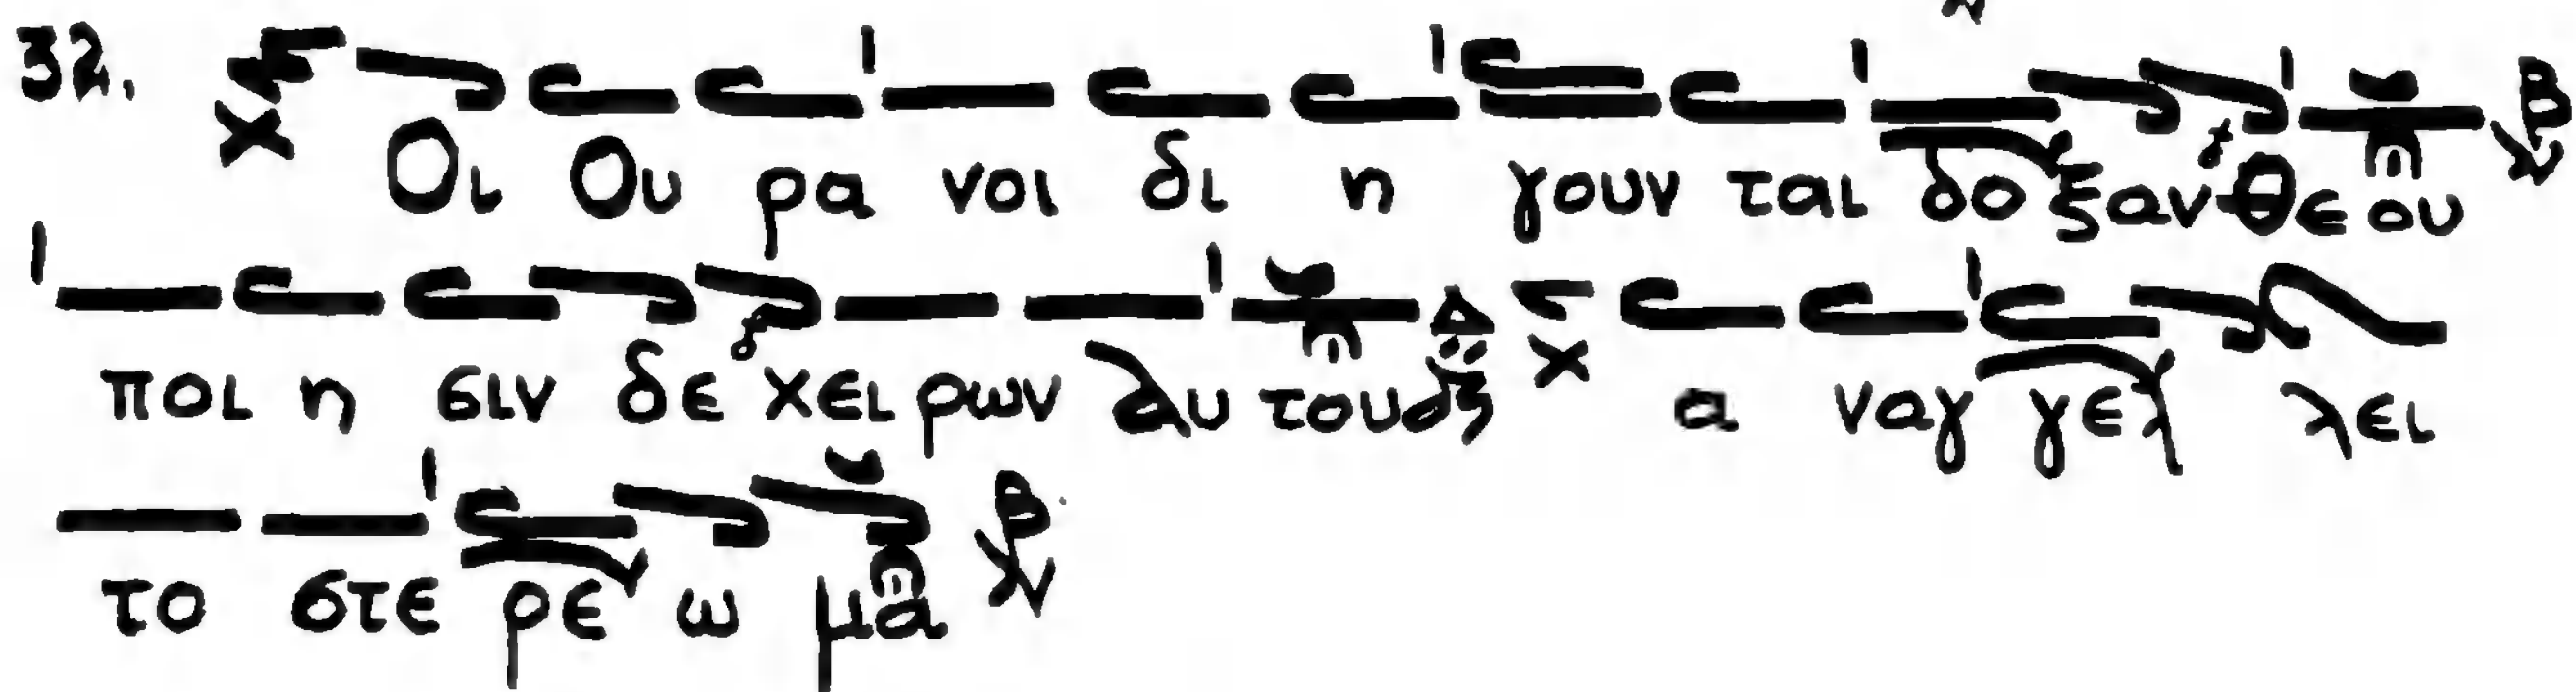 32. Οι Ου ρα νοι δι η γουν ται δο ξαν Θε ου
ποι η σιν δε χει ρων αυ του α ναγ γελ λει
το στε ρε ω μα